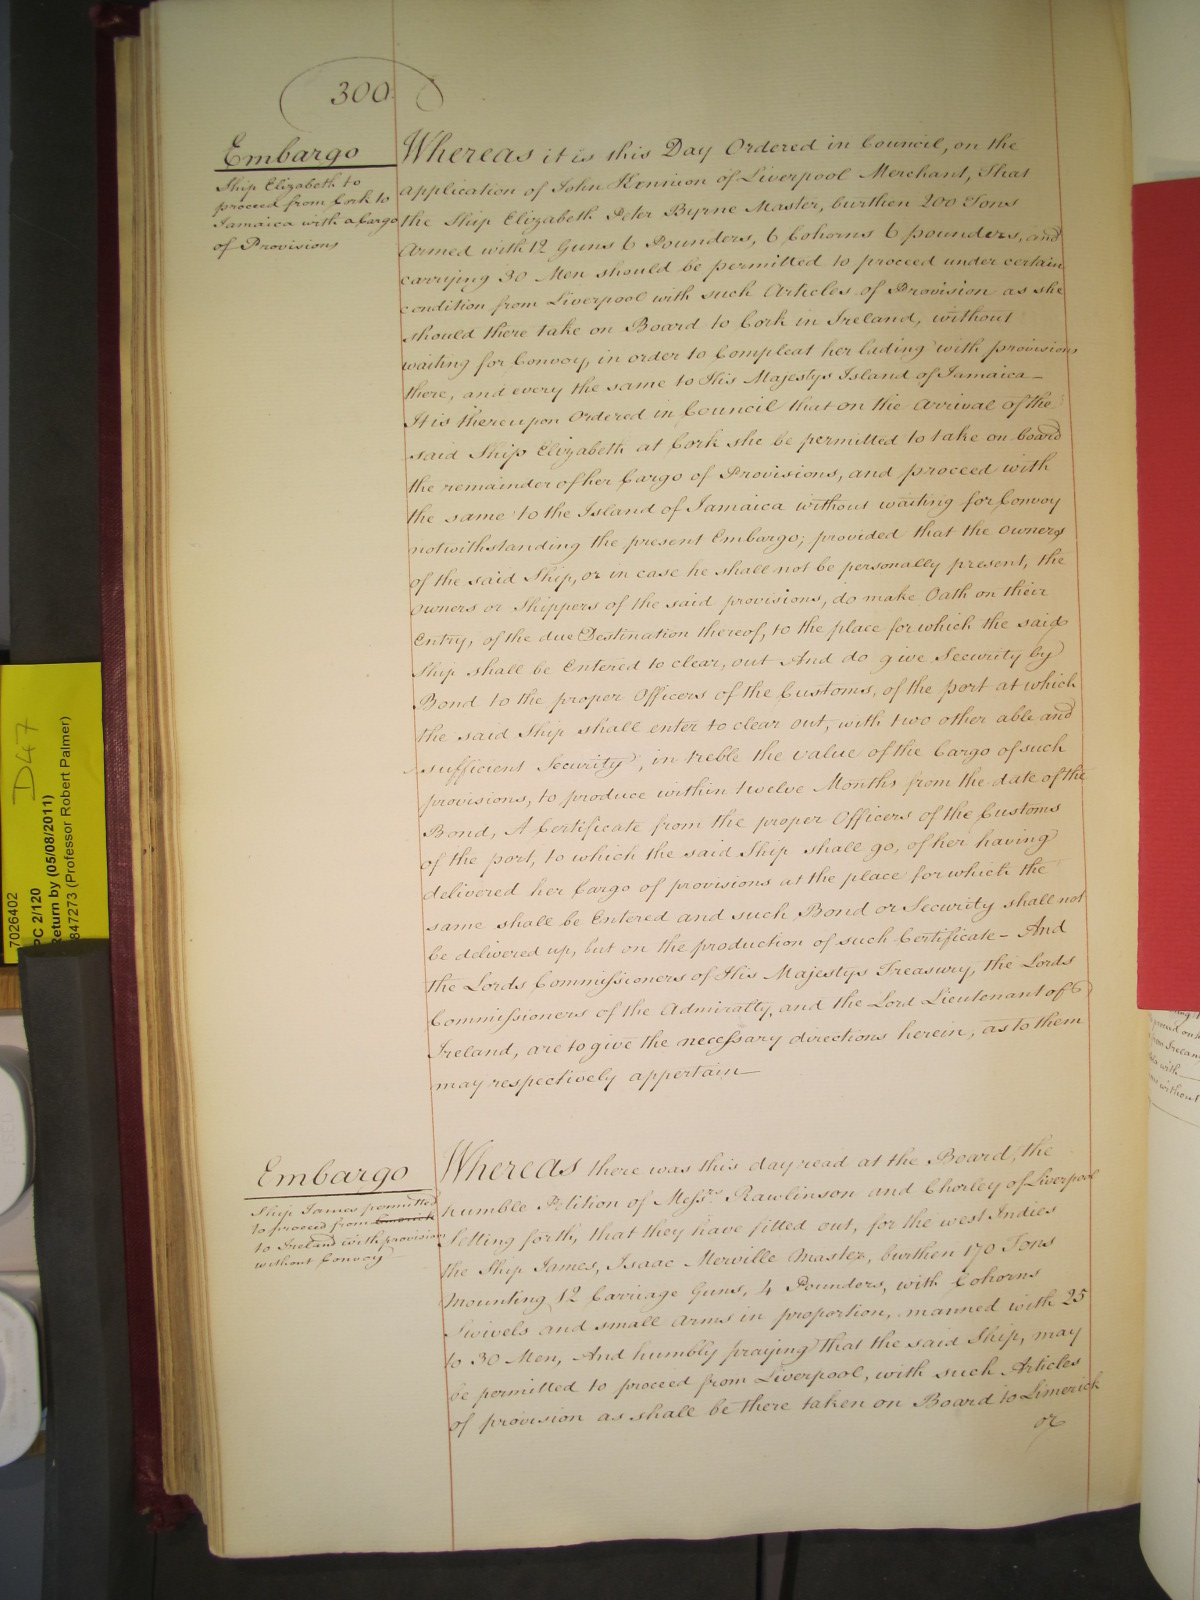 300
Embargo
Ship Elizabeth to
proceed from Cork to
Jamaica with a Cargo
of Provisions
Whereas it is this Day Ordered in Council, on the
application of John Kennion of Liverpool Merchant, That
the Ship Elizabeth Peter Byrne Master, burthen 200 Tons
Armed with 12 Guns 6 Pounders, 6 Cohorns 6 pounders, and
carrying 30 Men should be permitted to proceed under certain
condition from Liverpool with such Articles of Provision as she
should there take on Board to Cork in Ireland, without
waiting for Convoy, in order to Compleat her lading with provisions
there, and every the same to His Majestys Island of Jamaica—
It is thereupon Ordered in Council that on the Arrival of the
said Ship Elizabeth at Cork she be permitted to take on board
the remainder of her Cargo of Provisions, and proceed with
the same to the Island of Jamaica without waiting for Convoy
notwithstanding the present Embargo; provided that the Owners
of the said Ship, or in case he shall not be personally present, the
Owners or Shippers of the said provisions, do make Oath on their
Entry, of the due Destination thereof, to the place for which the said
Ship shall be Entered to clear, out And do give Security by
Bond to the proper Officers of the Customs, of the port at which
the said Ship shall enter to clear out, with two other able and
sufficient Security, in treble the value of the Cargo of such
provisions, to produce within twelve Months from the date of the
Bond, A Certificate from the proper Officers of the Customs
of the port, to which the said Ship shall go, of her having
delivered her Cargo of provisions at the place for which the
same shall be Entered and such Bond or Security shall not
be delivered up, but on the production of such Certificate— And
the Lords Commissioners of His Majestys Treasury, the Lords
Commissioners of the Admiralty, and the Lord Lieutenant of
Ireland, are to give the necessary directions herein, as to them
may respectively appertain—
Embargo
Ship James permitted
to proceed from Limerick
to Ireland with provision
without Convoy
Whereas there was this day read at the Board, the
humble Petition of Messrs. Rawlinson and Chorley of Liverpool
setting forth, that they have fitted out, for the west Indies
the Ship James, Isaac Merville Master, burthen 170 Tons
Mounting 12 Carriage Guns, 4 Pounders, with Cohorns
Swivels and small Arms in proportion, manned with 25
to 30 Men, And humbly praying that the said Ship, may
be permitted to proceed from Liverpool, with such Articles
of provision as shall be there taken on Board to Limerick
or
D47
7026402
PC 2/120
Return by (05/08/2011)
847273 (Professor Robert Palmer)